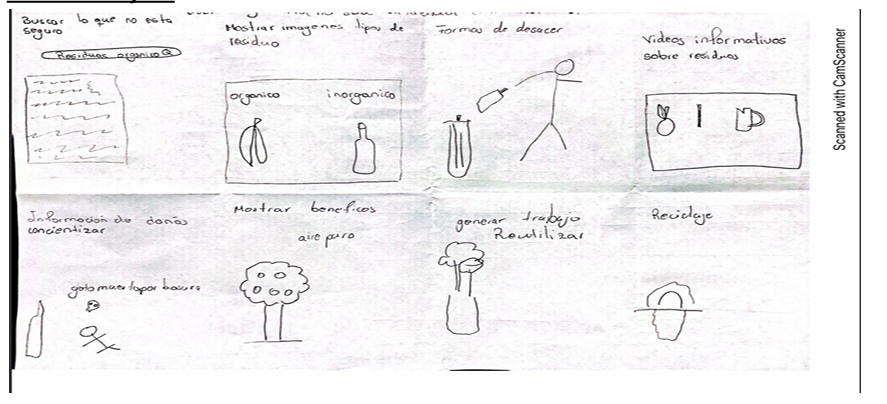 Buscar lo que no esta
seguro
Residuos organico
Mostrar imagenes tipos de
residuo
organico inorganico
Formas de desacer
Videos informativos
sobre residuos
Informacion de daños
concientizar
gato muerto por basura
Mostrar beneficos
aire puro
generar trabajo
Reutilizar
Reciclaje
Scanned with CamScanner